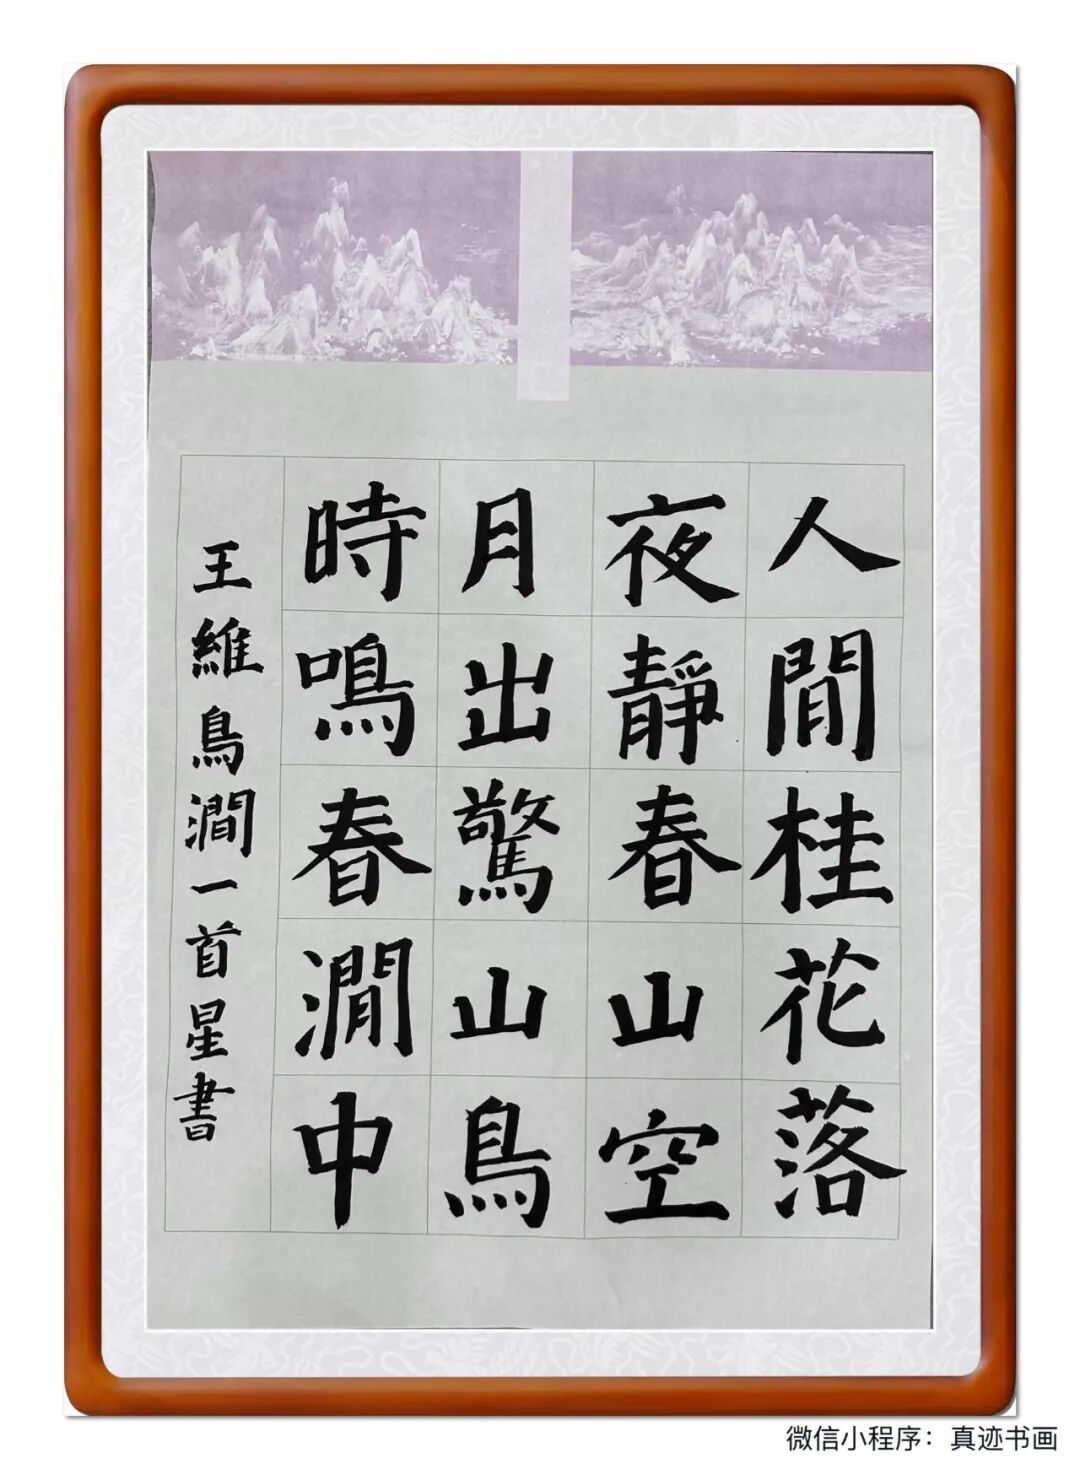 人閒桂花落
夜靜春山空
月出驚山鳥
時鳴春澗中
王維鳥澗一首星書
微信小程序：真迹书画